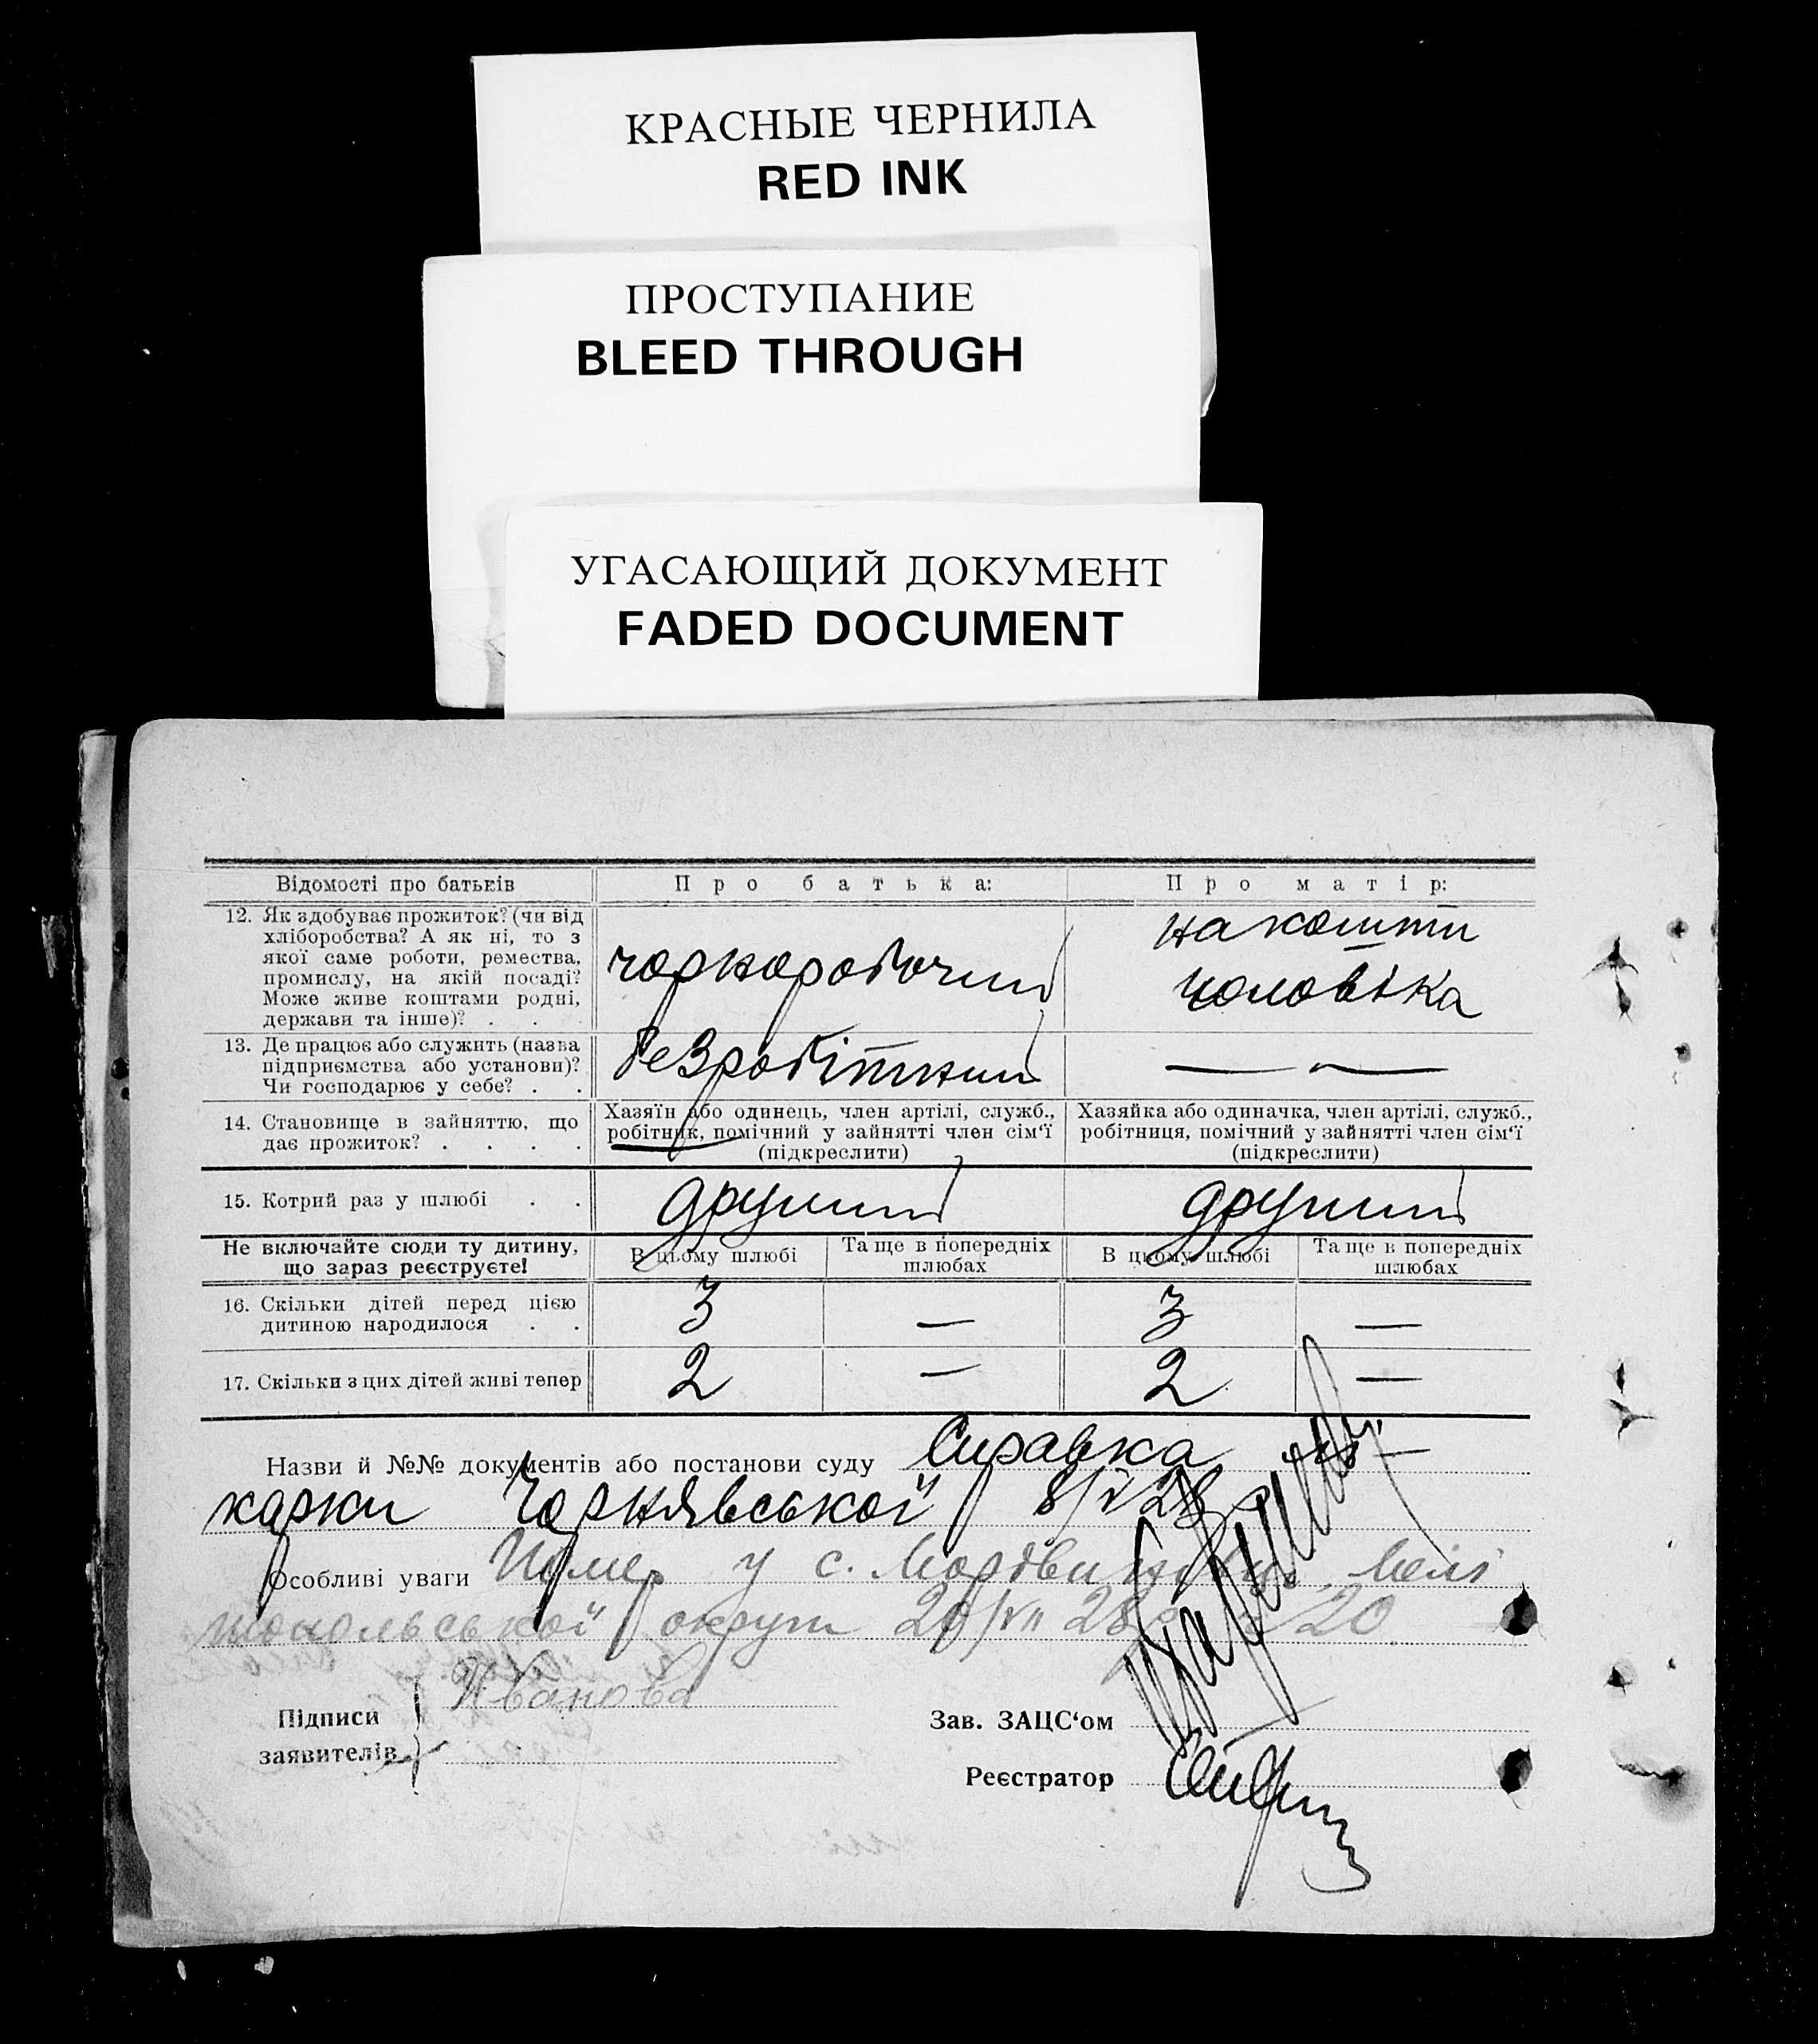 КРАСНЫЕ ЧЕРНИЛА
RED INK
ПРОСТУПАНИЕ
BLEED THROUGH
УГАСАЮЩИЙ ДОКУМЕНТ
FADED DOCUMENT
Відомості про батьків
Про батька:
Про матір:
12. Як здобуває прожиток? (чи від
хліборобства? А як ні, то з
якої саме роботи, ремества,
промислу, на якій посаді?
Може живе коштами родні,
держави та інше)? . .
чорноробочий
на кошти
чоловіка
13. Де працює або служить (назва
підприємства або установи)?
Чи господарює у себе? . .
безробітний
— ~ —
14. Становище в зайняттю, що
дає прожиток? . . . .
Хазяїн або одинець, член артілі, служб.,
робітник, помічний у зайнятті член сім‘ї
(підкреслити)
Хазяйка або одиначка, член артілі, служб.,
робітниця, помічний у зайнятті член сім‘ї
(підкреслити)
15. Котрий раз у шлюбі . .
другий
другий
Не включайте сюди ту дитину,
що зараз реєструєте!
В цьому шлюбі
Та ще в попередніх
шлюбах
В цьому шлюбі
Та ще в попередніх
шлюбах
16. Скільки дітей перед цією
дитиною народилося . .
3
—
3
—
17. Скільки з цих дітей живі тепер
2
—
2
—
Назви й №№ документів або постанови суду Справка лі-
карки Чорнявської 8/V 28 р
Особливі уваги Помер у с. Мордвинівці, Мелі
топольської округи 20/VII 28 р 20
Підписи
заявителів
Иванова
Зав. ЗАЦС‘ом
Реєстратор